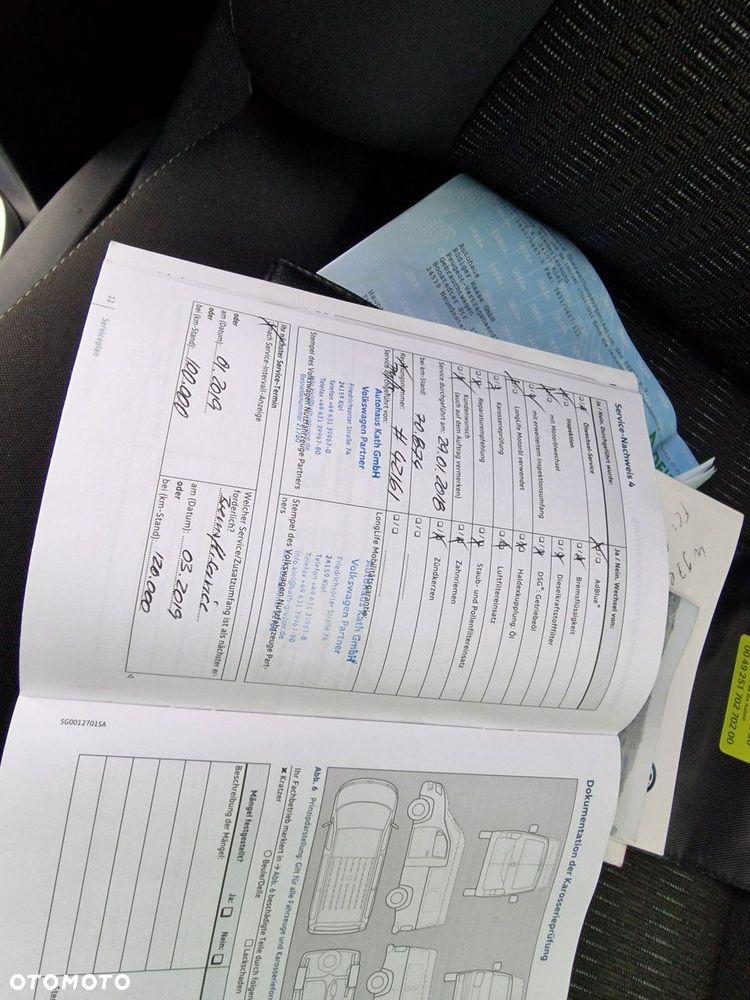 Service-Nachweis 4
Ja / Nein. Durchgeführt wurde:
Ja / Nein. Wechsel von:
Ölwechsel-Service
AdBlue®
Inspektion
Bremsflüssigkeit
mit Motorölwechsel
Dieselkraftstofffilter
mit erweitertem Inspektionsumfang
DSG®-Getriebeöl
LongLife Motoröl verwendet
Haldexkupplung: Öl
Karosserieprüfung
Luftfiltereinsatz
Reparaturempfehlung
Staub- und Pollenfiltereinsatz
Kundenwunsch
(auch auf dem Auftrag vermerken)
Zahnriemen
Service durchgeführt am: 29.01.2018
Zündkerzen
bei km-Stand: 70.874
Rechnungsnummer: # 42161
Service durchgeführt von:
LongLife Mobilitätsgarantie:
Autohaus Kath GmbH
Volkswagen Partner
Friedrichsorter Straße 74
24159 Kiel
Telefon +49 431 39967-0
Telefax +49 431 39967-80
Stempel des Volkswagen Nutzfahrzeuge Partners
Autohaus Kath GmbH
Volkswagen Partner
Friedrichsorter Straße 74
24159 Kiel
Telefon +49 431
Telefax +49 431
Stempel des Volkswagen Nutzfahrzeuge Part-
ners
Ihr nächster Service-Termin
nach Service-Intervall-Anzeige
oder
am (Datum): 01.2019
oder
bei (km-Stand): 100.000
Welcher Service/Zusatzumfang ist als nächster er-
forderlich?
am (Datum): 03.2019
oder
bei (km-Stand): 120.000
12 | Serviceplan
SG0012701SA
Dokumentation der Karosserieprüfung
Abb. 6 Prinzipdarstellung: Gilt für alle Fahrzeuge und
Ihr Fachbetrieb markiert in → Abb. 6 beschädigte Teile durch
× Kratzer
○ Beule/Delle
□ Lackschaden
Mängel festgestellt?
Ja:
Nein:
Beschreibung der Mängel:
Autohaus
Rüdiger Haase GmbH
Gebrauchtwagen
Boostedter Str.
00 49 251 702 702 00
OTOMOTO